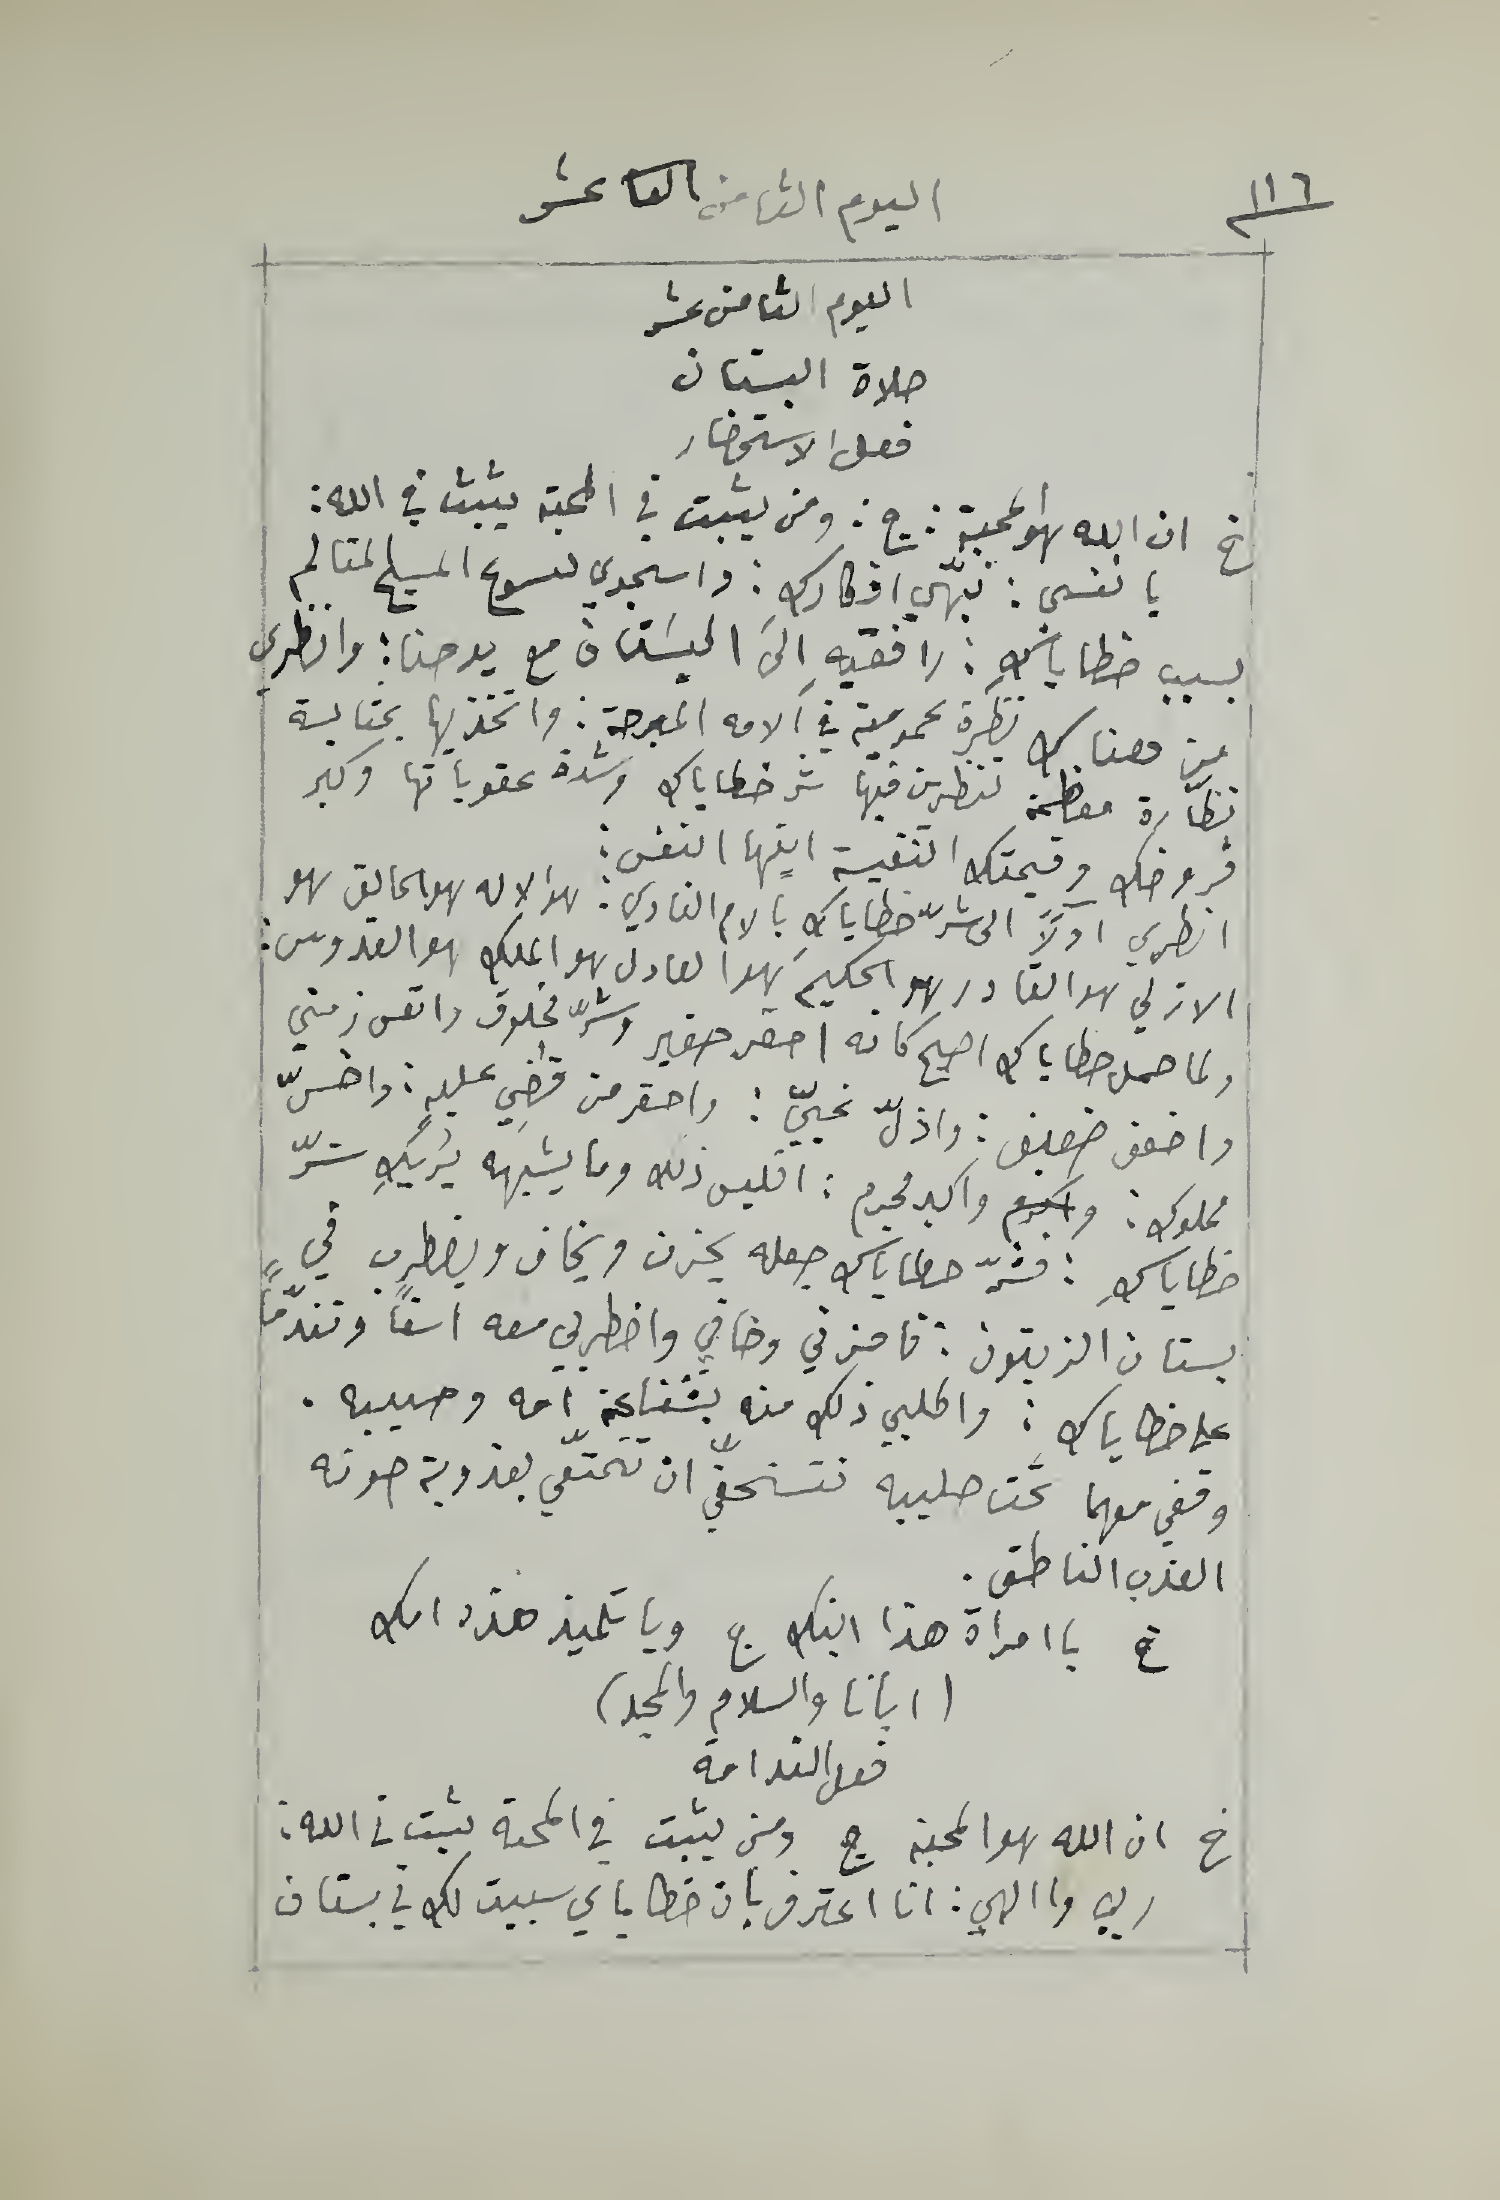 ١١٦
اليوم الثامن عشر
اليوم الثامن عشر
صلاة البستان
فعل الاستحضار
خ ان الله هو المحبة : ج : ومن يثبت في المحبة يثبت في الله :
يا نفسي : نبّهي افكاركِ : واسجدي ليسوع المسيح المتالم
بسبب خطاياكِ : رافقيهِ الى البستان مع يوحنا : وانظري
من هناك نظرة عمومية في آلامه المبرحة : واتخذيها بمثابة
نظّارة معظمة تنظرين فيها شر خطاياك وشدة عقوباتها وكبر
فروضك وقيمتك النفيسة ايتها النفس :
انظري اولاً الى شرّ خطاياكِ بالام الفادي : هو الاله هو الخالق هو
الازلي هو القادر هو الحكيم هو العادل هو الملك هو القدوس :
ولما حمل خطاياك اصبح كانه احقر حقير وشرّ مخلوق واتعس زمني
واضعف ضعيف : واذلّ : واحقر من قضي عليهِ : واخسّ
مملوك : واكبر مجرم : افليس ذلك وما يشبهه يريكِ شرّ
خطاياكِ : فشرّ خطاياك جعله يحزن ويخاف ويضطرب في
بستان الزيتون : فاحزني وخافي واضطربي معه اسفاً وتندّماً
على خطاياك : واطلبي ذلك منه بشفاعة امه وحبيبه .
وقفي معهما تحت صليبه فتستحقّي ان تتمتّعي بعذوبة صوته
العذب الناطق .
خ يا امراة هذا ابنك ج ويا تلميذ هذه امك
(ابانا والسلام والمجد)
فعل الندامة
خ ان الله هو المحبة ج ومن يثبت في المحبة يثبت في الله :
ربي والهي : انا اعترف بان خطاياي سببت لك في بستان